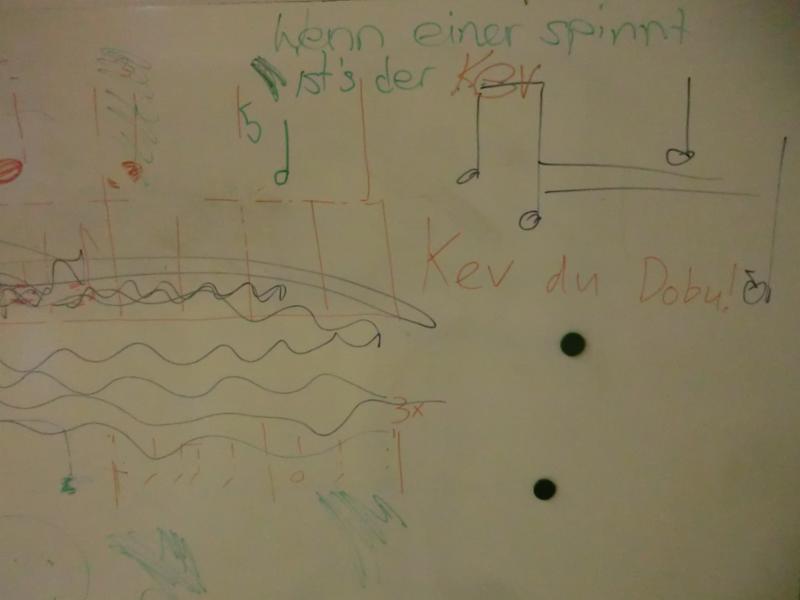 Wenn einer spinnt
ist's der Kev
5
Kev du Dobu!
3x